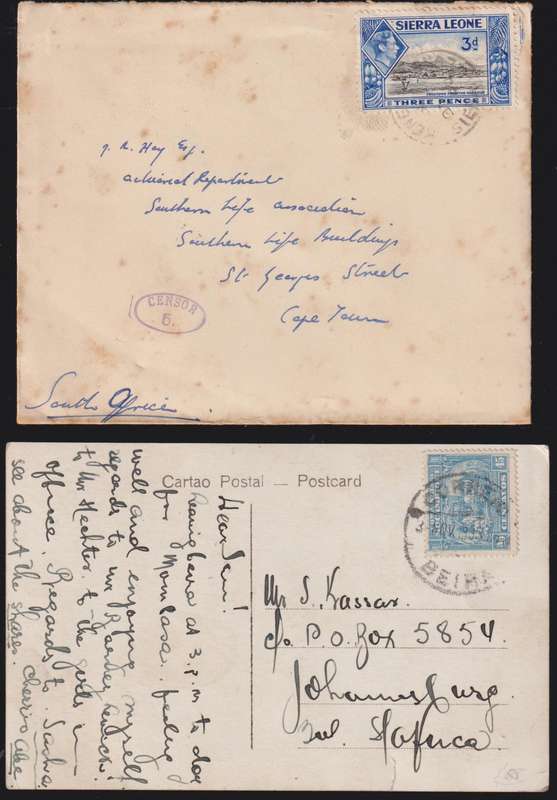 SIERRA LEONE
3d
FREETOWN FROM THE HARBOUR
THREE PENCE
Hay Esq.
Department
Southern Life Association
Southern Life Buildings
St Georges Street
Cape Town
CENSOR
5.
South Africa
Cartao Postal — Postcard
Dear Sam!
Beira at 3 p.m to day
for Mombasa. feeling
well and enjoying myself.
regards to
to Mr to the girls in
office. Regards to
see about the shares. Cheerio Abe
45
BEIRA
Mr S. Kassar.
c/o P.O. Box 5854.
Johannesburg.
S Africa.